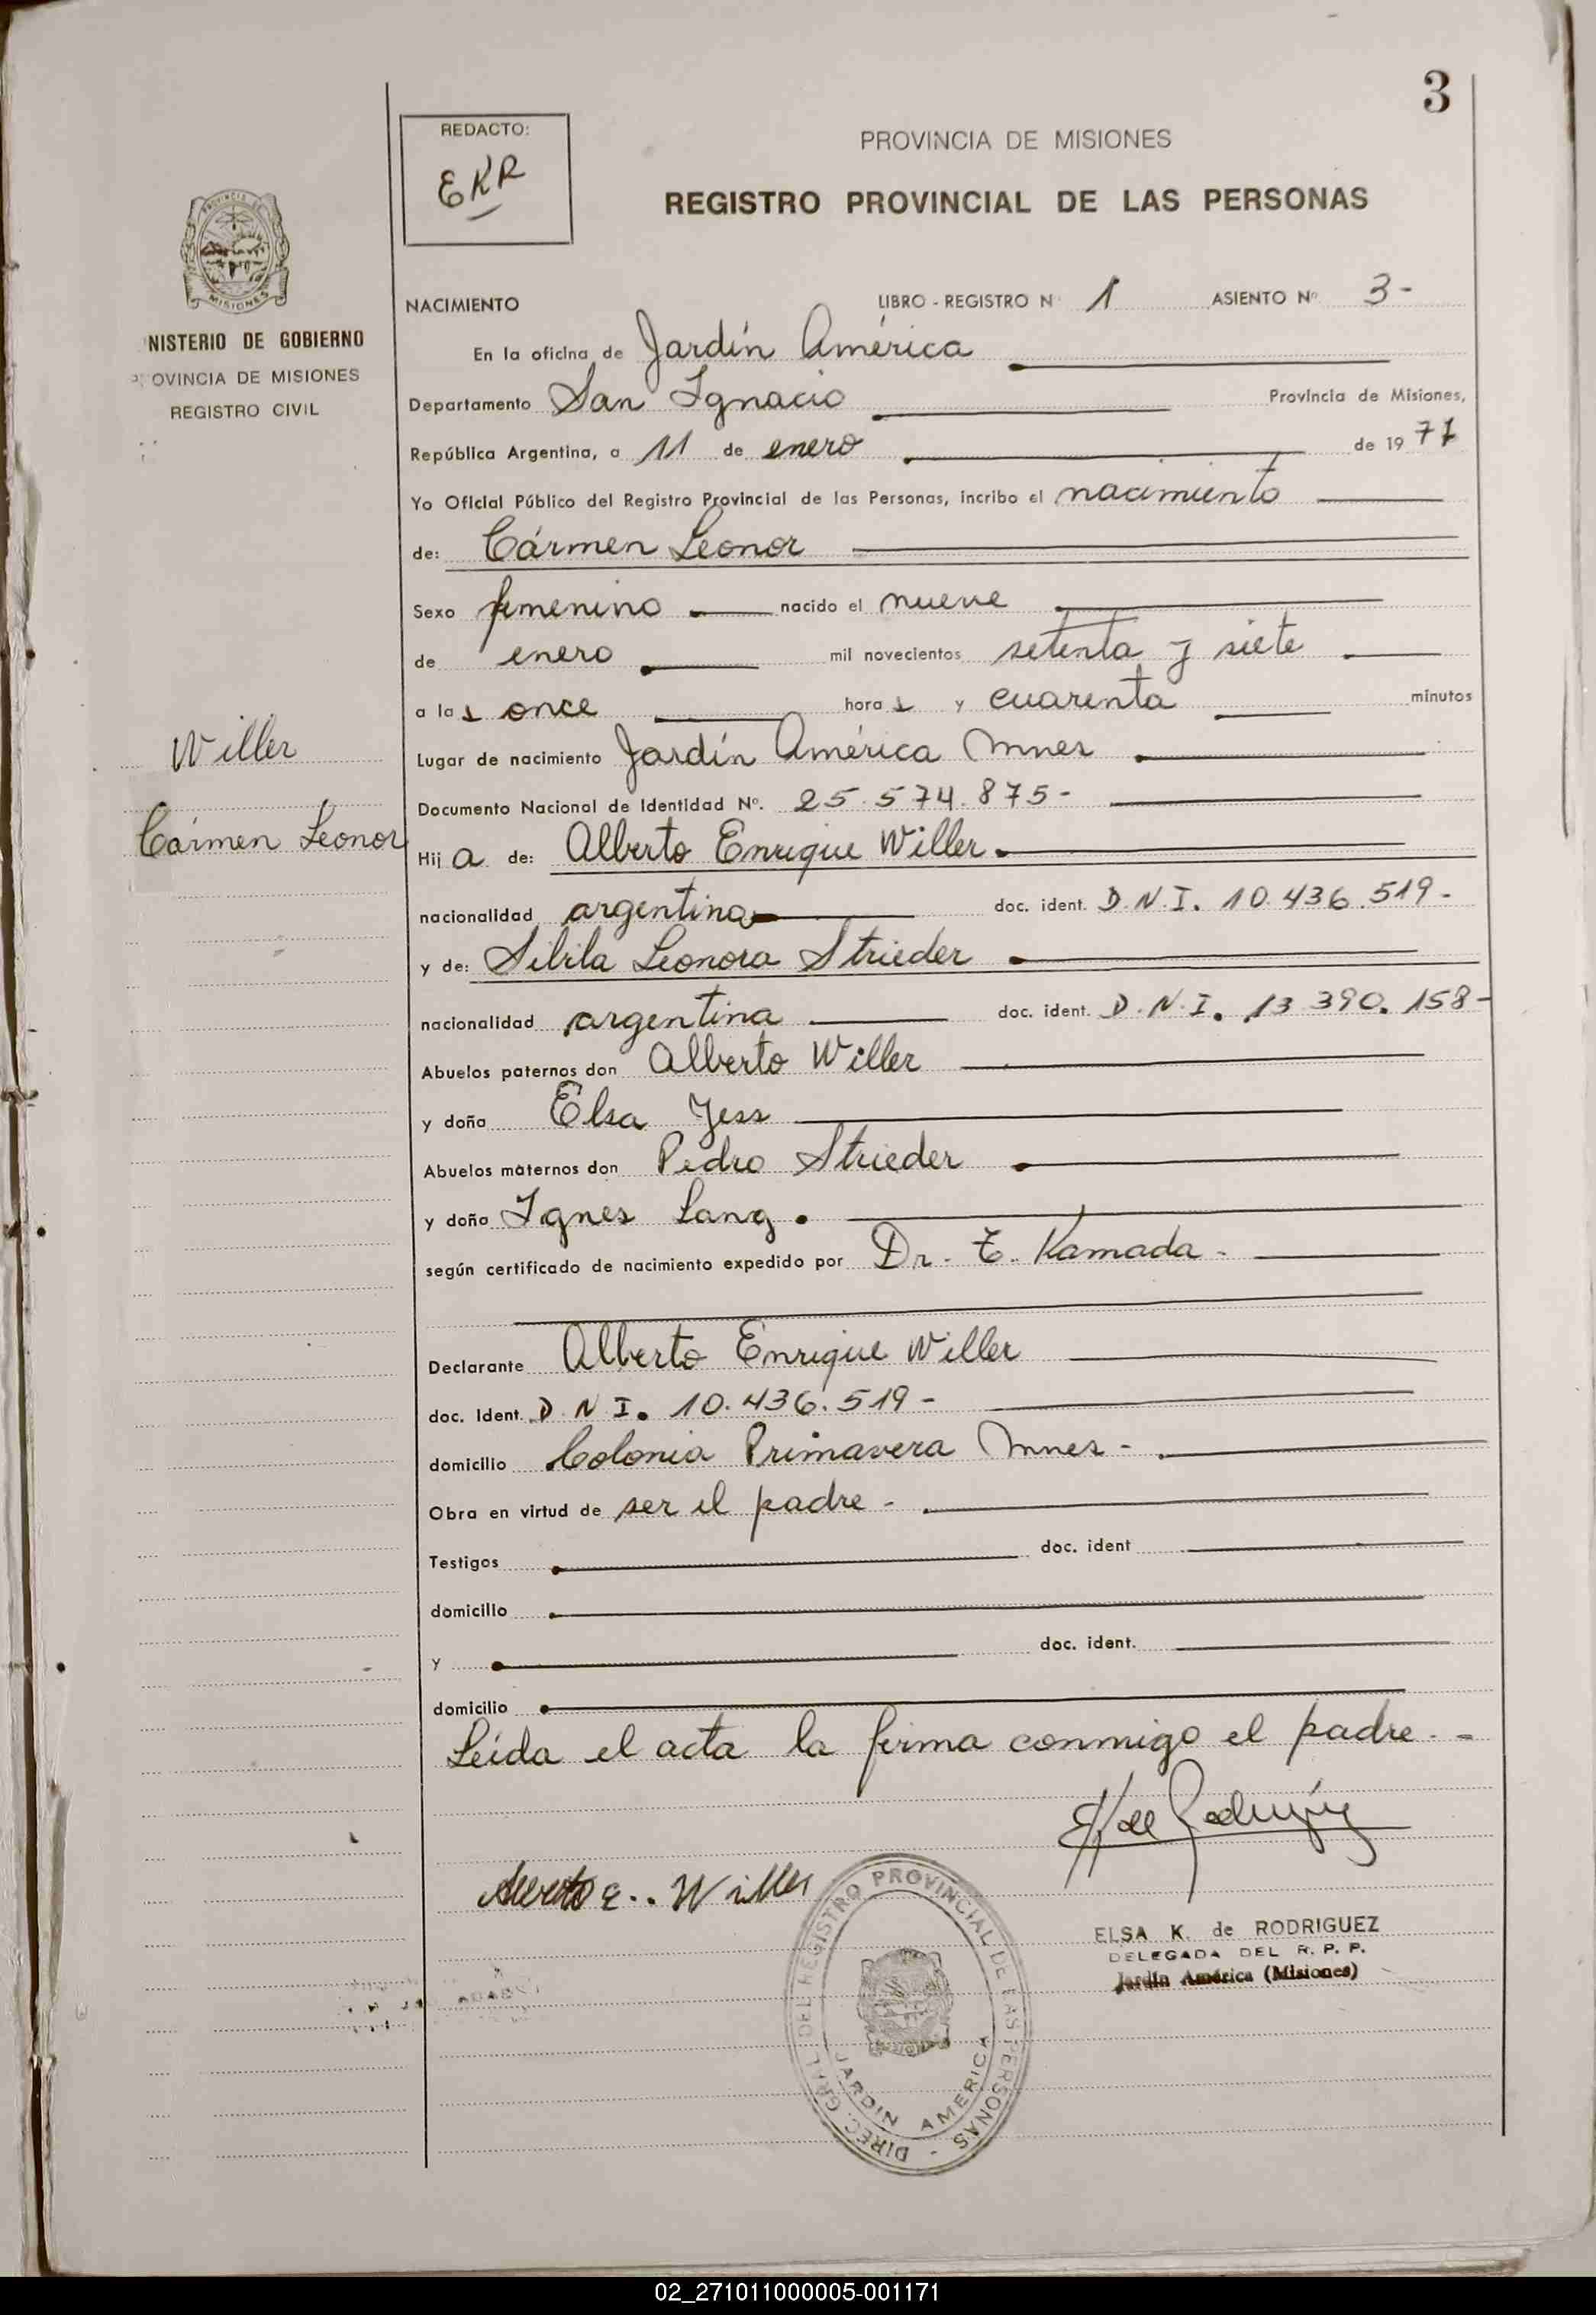 3
REDACTO:
EKR
PROVINCIA DE MISIONES
REGISTRO PROVINCIAL DE LAS PERSONAS
PROVINCIA DE
MISIONES
NISTERIO DE GOBIERNO
OVINCIA DE MISIONES
REGISTRO CIVIL
NACIMIENTO LIBRO - REGISTRO N° 1 ASIENTO Nº 3-
En la oficina de Jardín América
Departamento San Ignacio Provincia de Misiones,
República Argentina, a 11 de enero de 1977
Yo Oficial Público del Registro Provincial de las Personas, incribo el nacimiento
de: Cármen Leonor
Sexo femenino nacido el nueve
de enero mil novecientos setenta y siete
a las once horas y cuarenta minutos
Willer
Lugar de nacimiento Jardín América Mnes
Documento Nacional de Identidad Nº. 25.574.875-
Cármen Leonor
Hija de: Alberto Enrique Willer.
nacionalidad argentina doc. ident. D.N.I. 10.436.519-
y de: Sibila Leonora Strieder
nacionalidad argentina doc. ident. D.N.I. 13.390.158-
Abuelos paternos don Alberto Willer
y doña Elsa Yess
Abuelos maternos don Pedro Strieder
y doña Ignes Lang.
según certificado de nacimiento expedido por Dr. T. Kamada-
Declarante Alberto Enrique Willer
doc. Ident. D.N.I. 10.436.519-
domicilio Colonia Primavera Mnes-
Obra en virtud de ser el padre-
Testigos doc. ident
domicilio
y doc. ident.
domicilio
Leída el acta la firma conmigo el padre.-
EK de Rodríguez
Alberto E.. Willer
ELSA K. de RODRIGUEZ
DELEGADA DEL R. P. P.
Jardín América (Misiones)
DIREC. GRAL. DEL REGISTRO PROVINCIAL DE LAS PERSONAS -
JARDIN AMERICA
02_271011000005-001171